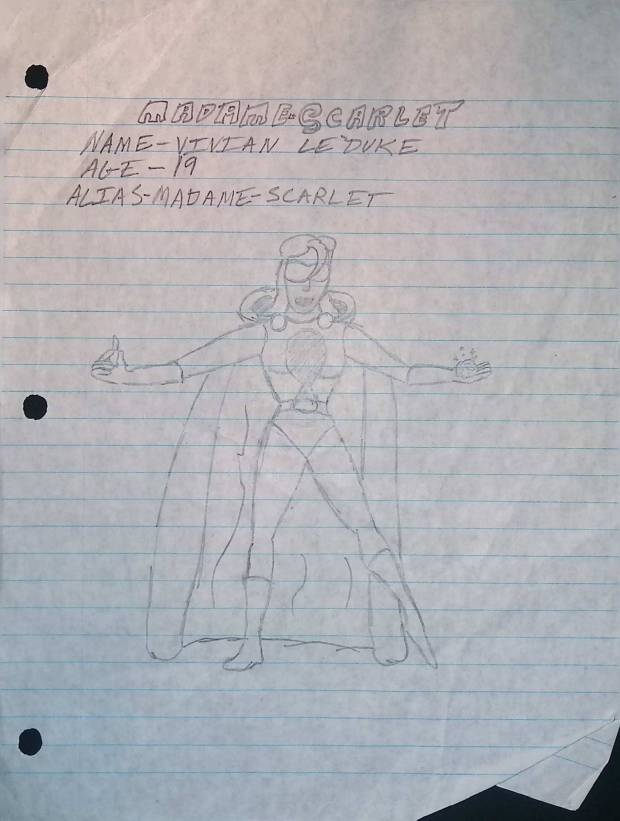 MADAME-SCARLET
NAME-VIVIAN LE'DUKE
AGE-19
ALIAS-MADAME-SCARLET